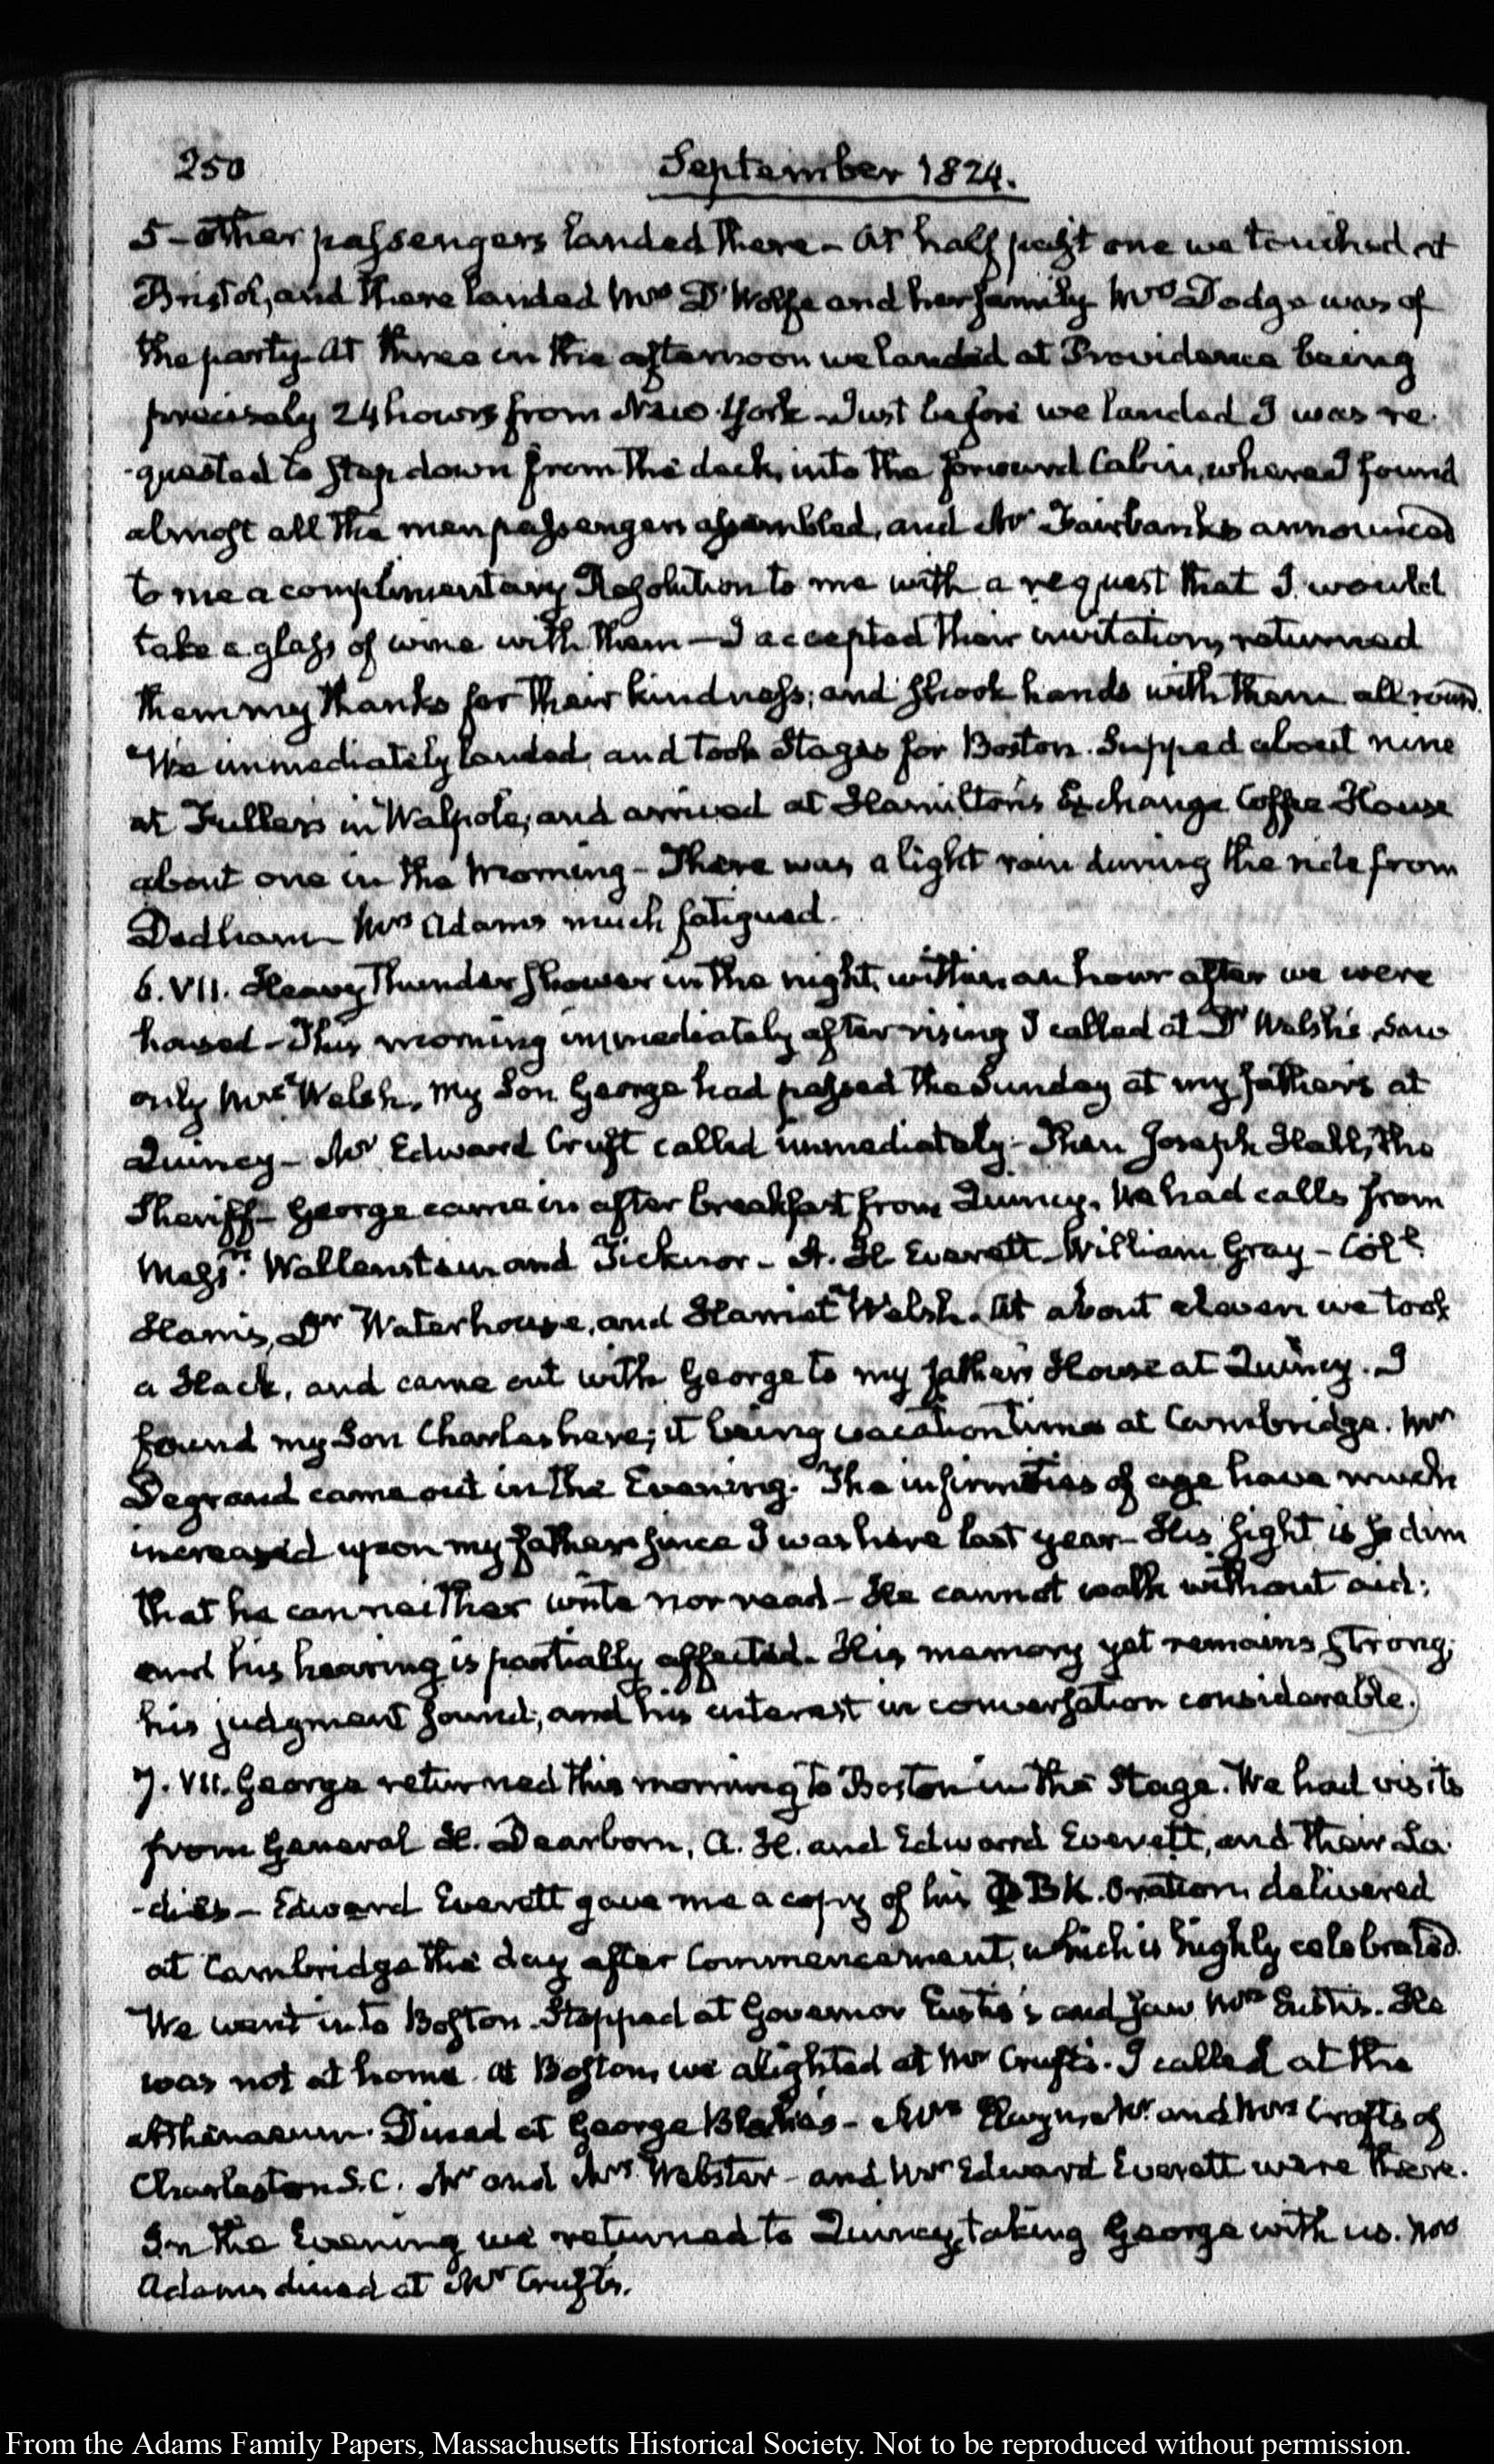 250
September 1824.
5 – other passengers landed there – At half past one we touched at
Bristol, and there landed Mrs D'Wolfe and her family Mrs Dodge was of
the party. At three in the afternoon we landed at Providence being
precisely 24 hours from New-York – Just before we landed I was re-
-quested to step down from the deck, into the forward Cabin, where I found
almost all the men passengers assembled, and Mr Fairbanks announced
to me a complimentary Resolution to me with a request that I would
take a glass of wine with them – I accepted their invitation, returned
them my thanks for their kindness; and shook hands with them all round.
We immediately landed, and took Stages for Boston. Supped about nine
at Fuller's in Walpole, and arrived at Hamilton's Exchange Coffee House
about one in the Morning – There was a light rain during the ride from
Dedham – Mrs Adams much fatigued.
6. VII. Heavy Thunder Shower in the night, within an hour after we were
housed – This morning immediately after rising I called at Dr Welsh's, saw
only Mrs Welsh, My Son George had passed the Sunday at my father's at
Quincy – Mr Edward Cruft called immediately – Then Joseph Hall, the
Sheriff – George came in after breakfast from Quincy. We had calls from
Messrs. Wallenstein and Ticknor – A. H. Everett – William Gray – Coll
Harris, Dr Waterhouse, and Harriet Welsh. At about eleven we took
a Hack, and came out with George to my father's House at Quincy. I
found my Son Charles here; it being vacation time at Cambridge. Mr
Degrand came out in the Evening. The infirmities of age have much
increased upon my father since I was here last year – His sight is so dim
that he can neither write nor read – He cannot walk without aid:
and his hearing is partially affected. His memory yet remains strong,
his judgment sound; and his interest in conversation considerable.
7. VII. George returned this morning to Boston in the Stage. We had visits
from General H. Dearborn, A. H. and Edward Everett, and their La-
-dies – Edward Everett gave me a copy of his Φ B K. Oration, delivered
at Cambridge the day after Commencement, which is highly celebrated.
We went into Boston. Stopped at Governor Eustis's and saw Mrs Eustis. He
was not at home. At Boston, we alighted at Mr Cruft's. I called at the
Athenaeum. Dined at George Blake's – Mrs Mr. and Mrs Crafts of
Charleston S.C. Mr and Mrs Webster – and Mr Edward Everett were there.
In the Evening we returned to Quincy, taking George with us. Mrs
Adams dined at Mr Cruft's.
From the Adams Family Papers, Massachusetts Historical Society. Not to be reproduced without permission.